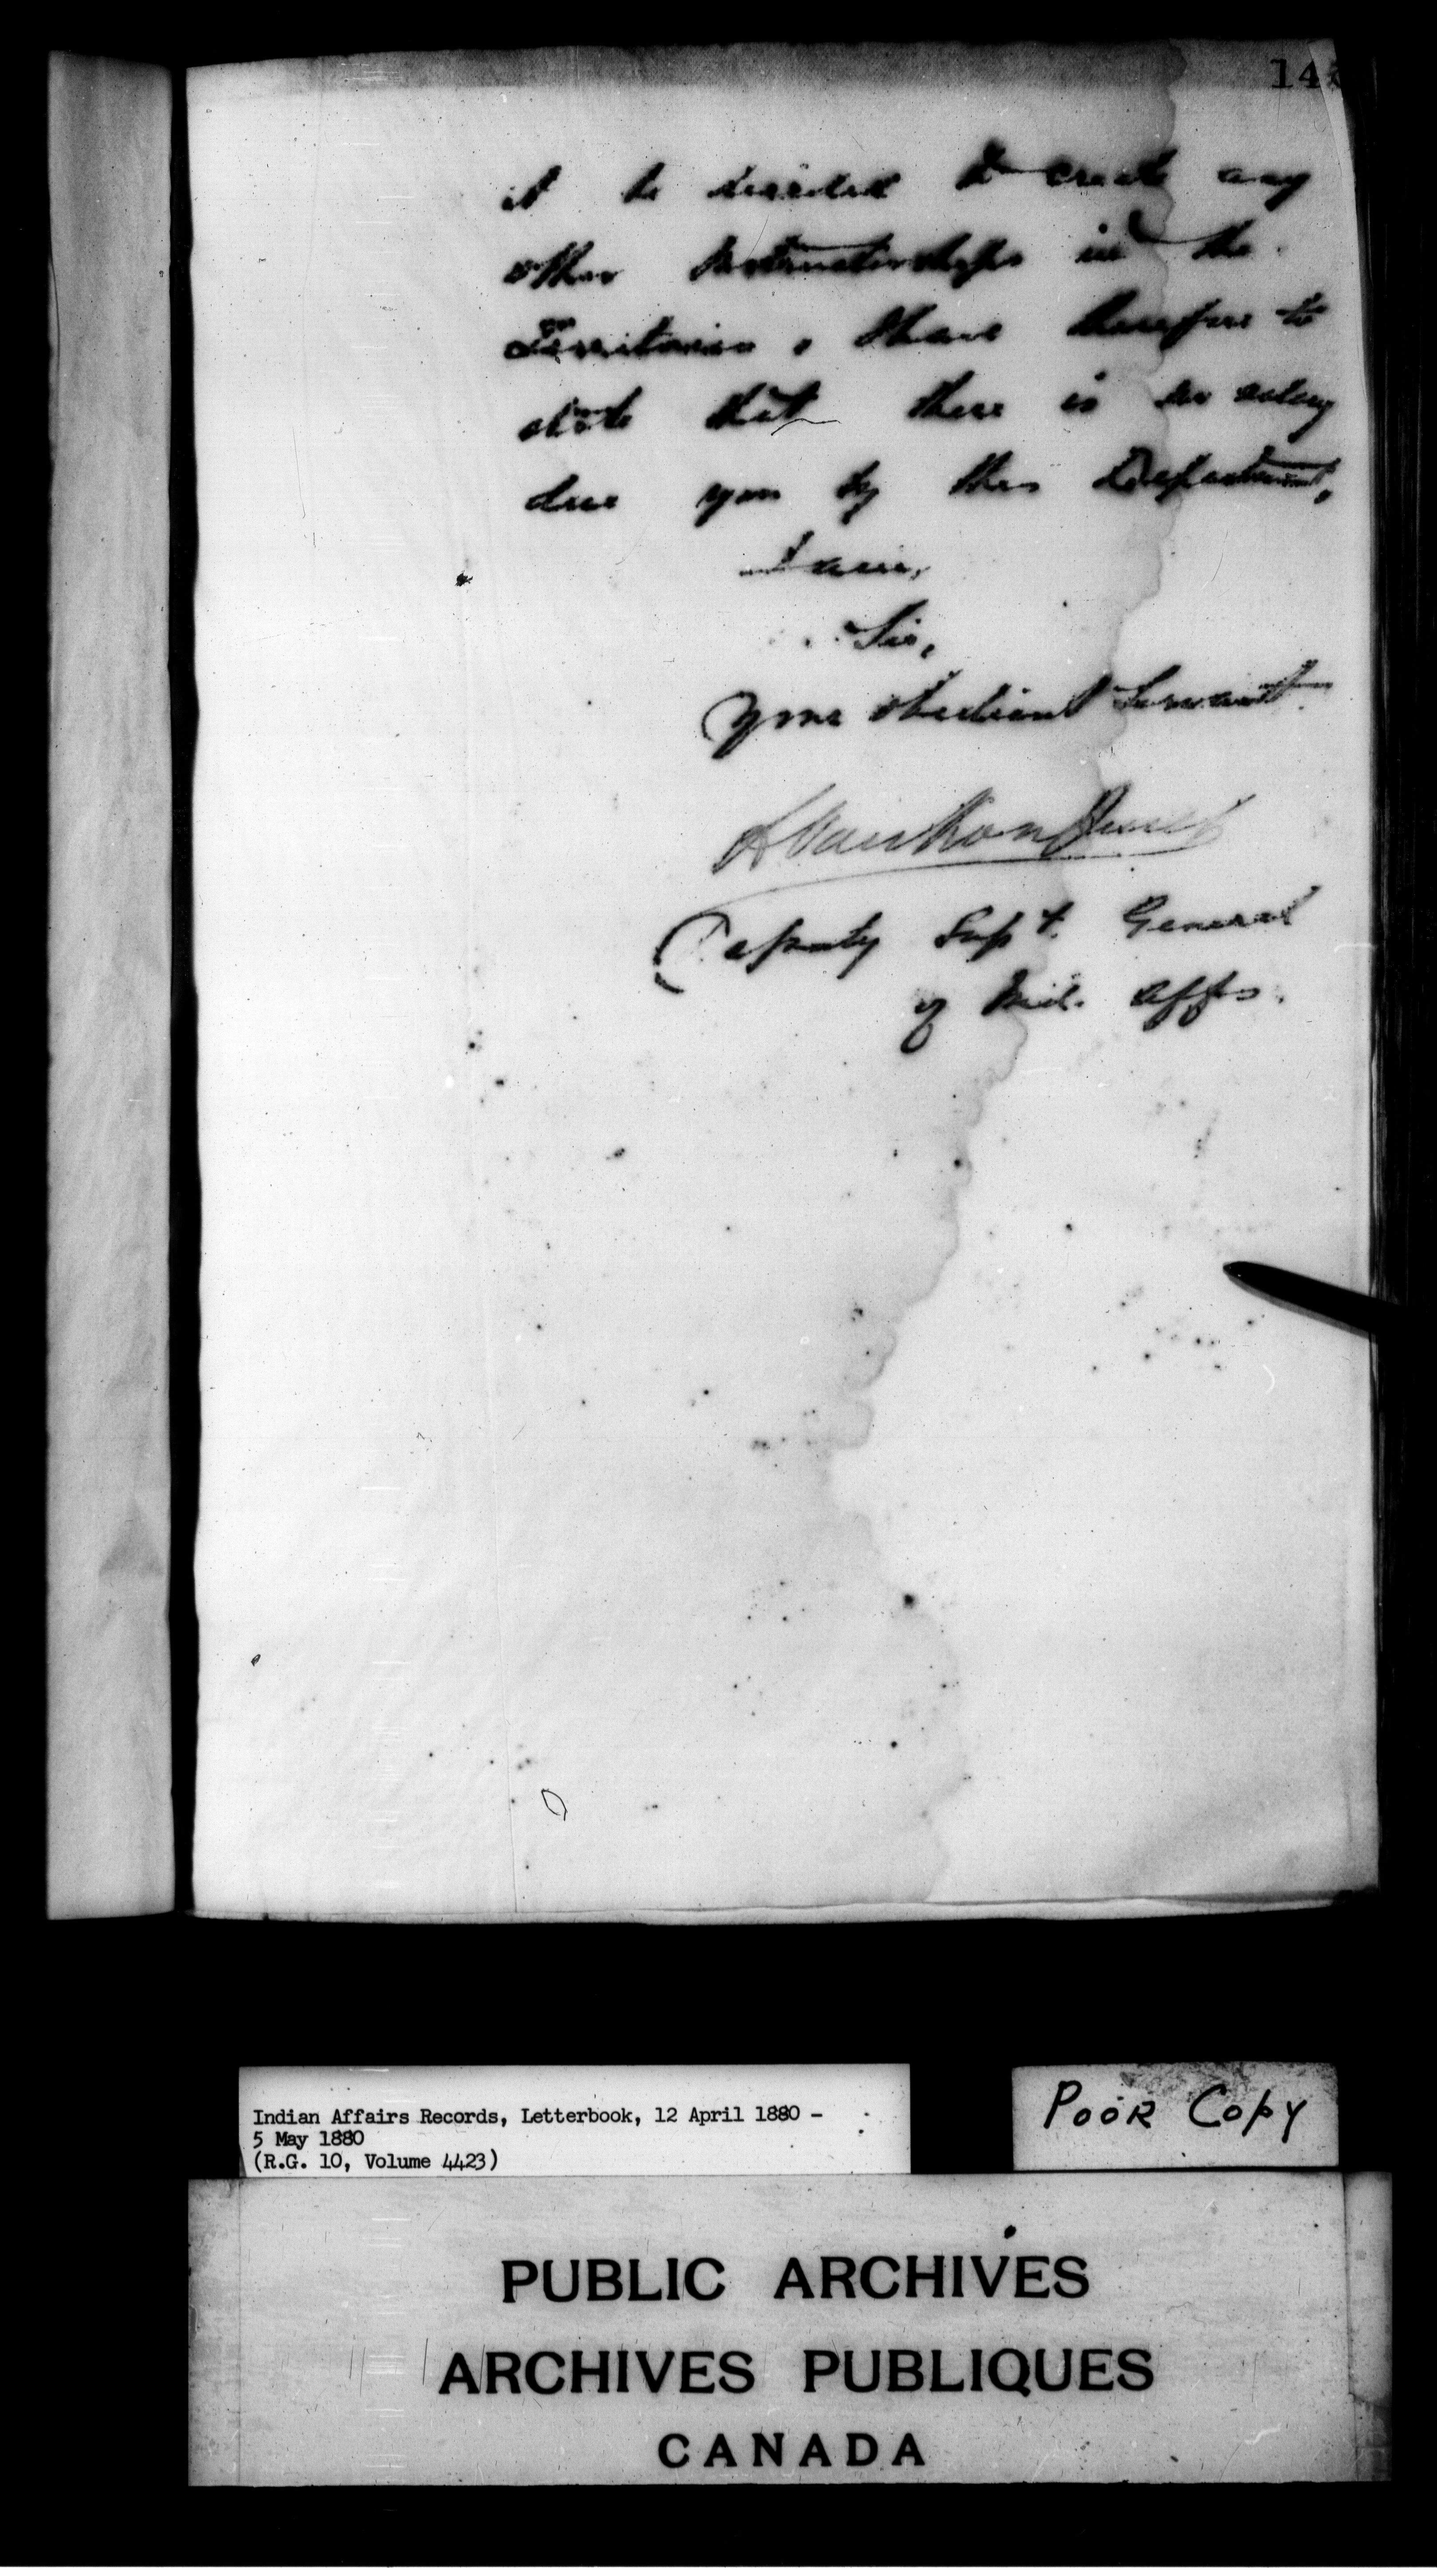 14
it be decided to create any
other Instructorships in the
Territories, I have therefore to
state that there is no salary
due you by this Department,
I am,
Sir,
Your obedient Servant.
L VanKoughnet
Deputy Supt. General
of Ind. Affrs.
Indian Affairs Records, Letterbook, 12 April 1880 -
5 May 1880
(R.G. 10, Volume 4423)
POOR COPY
PUBLIC ARCHIVES
ARCHIVES PUBLIQUES
CANADA